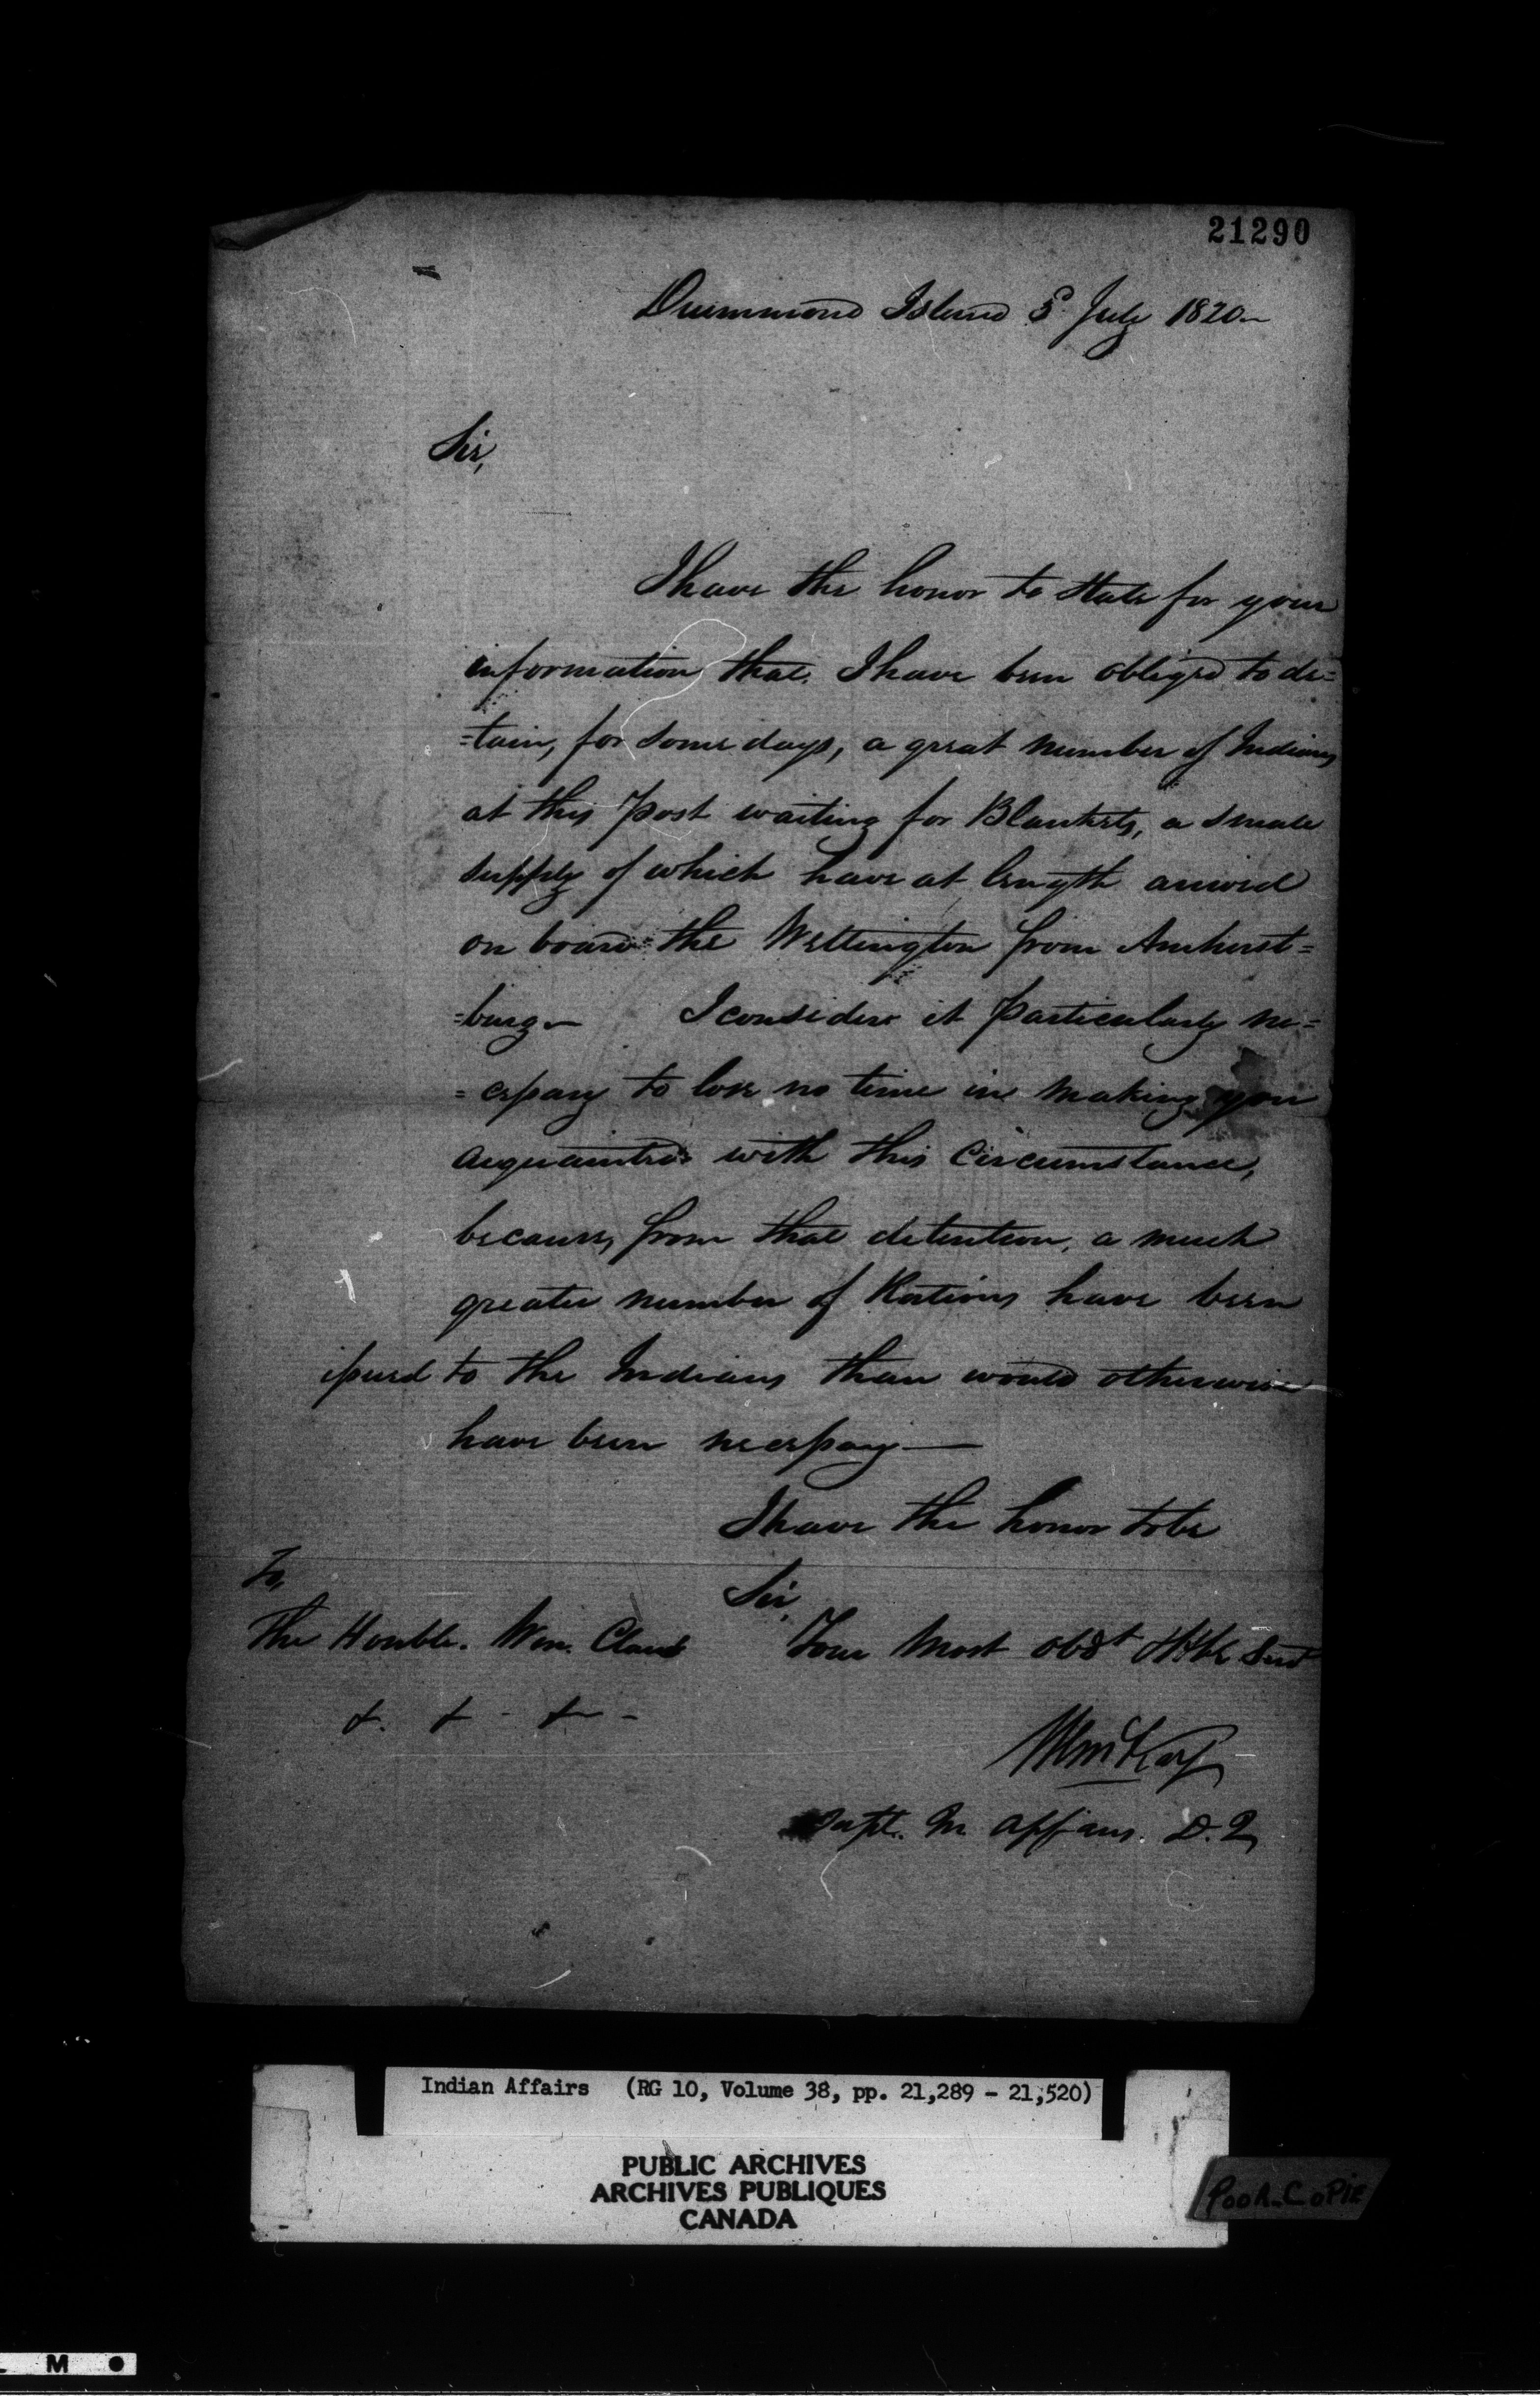 21290
Drummond Island 3d July 1820 —
Sir,
I have the honor to state for your
information that I have been obliged to de=
=tain, for some days, a great number of Indians
at this Post waiting for Blankets, a small
supply of which have at length arrived
on board the Wellington from Amherst=
=burg — I consider it particularly ne=
=cessary to lose no time in making you
acquainted with this Circumstance,
because, from that detention, a much
greater number of Rations have been
issued to the Indians than would otherwise
have been necessary —
I have the honor to be
Sir,
To,
The Honble. Wm. Claus
Your Most obdt Hble Servt
&. & - & -
WmcKay
Supt. In affairs. D. I
Indian Affairs (RG 10, Volume 38, pp. 21,289 - 21,520)
PUBLIC ARCHIVES
ARCHIVES PUBLIQUES
CANADA
POOR COPIE
M